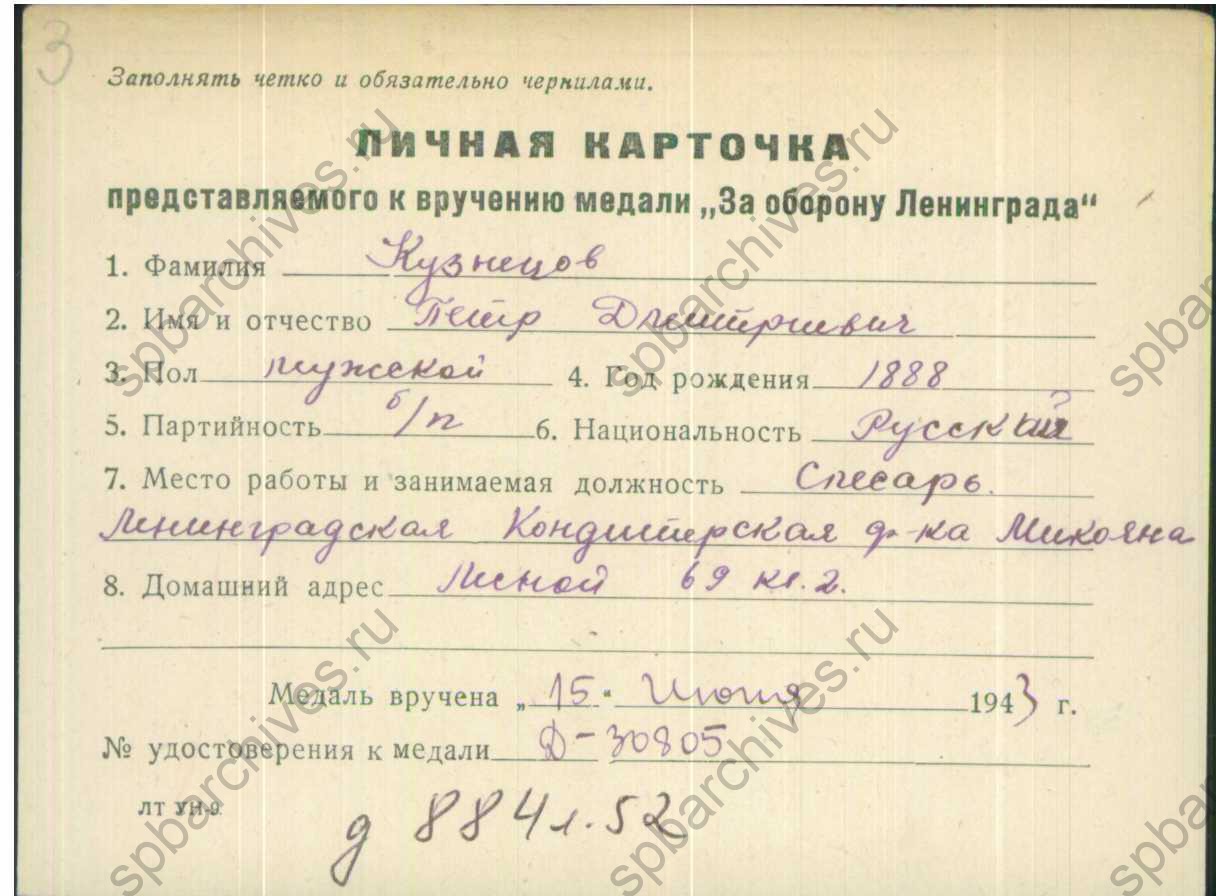 3
Заполнять четко и обязательно чернилами.
ЛИЧНАЯ КАРТОЧКА
представляемого к вручению медали „За оборону Ленинграда“
1. Фамилия Кузнецов
2. Имя и отчество Петр Дмитриевич
3. Пол мужской 4. Год рождения 1888
5. Партийность б/п 6. Национальность Русский
7. Место работы и занимаемая должность Слесарь.
Ленинградская Кондитерская ф-ка Микояна
8. Домашний адрес Лесной 69 кв. 2.
Медаль вручена „15“ Июня 1943 г.
№ удостоверения к медали Д-30805
ЛТ УН-9.
д 884 л. 52
spbarchives.ru